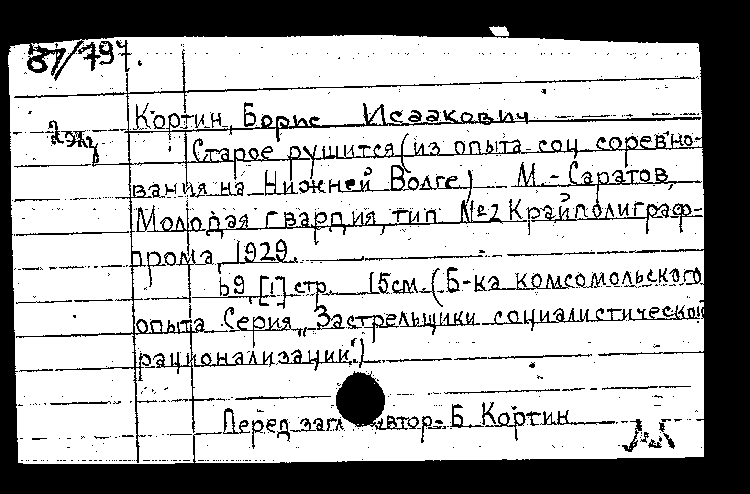 87/794.
2 экз
Кортин, Борис Исаакович
Старое рушится (из опыта соц. соревно-
вания на Нижней Волге) М.-Саратов,
Молодая гвардия, тип №2 Крайполиграф-
прома, 1929.
69, [1] стр. 15см. (Б-ка комсомольского
опыта Серия „Застрельщики социалистической
рационализации")
Перед загл автор- Б. Кортин